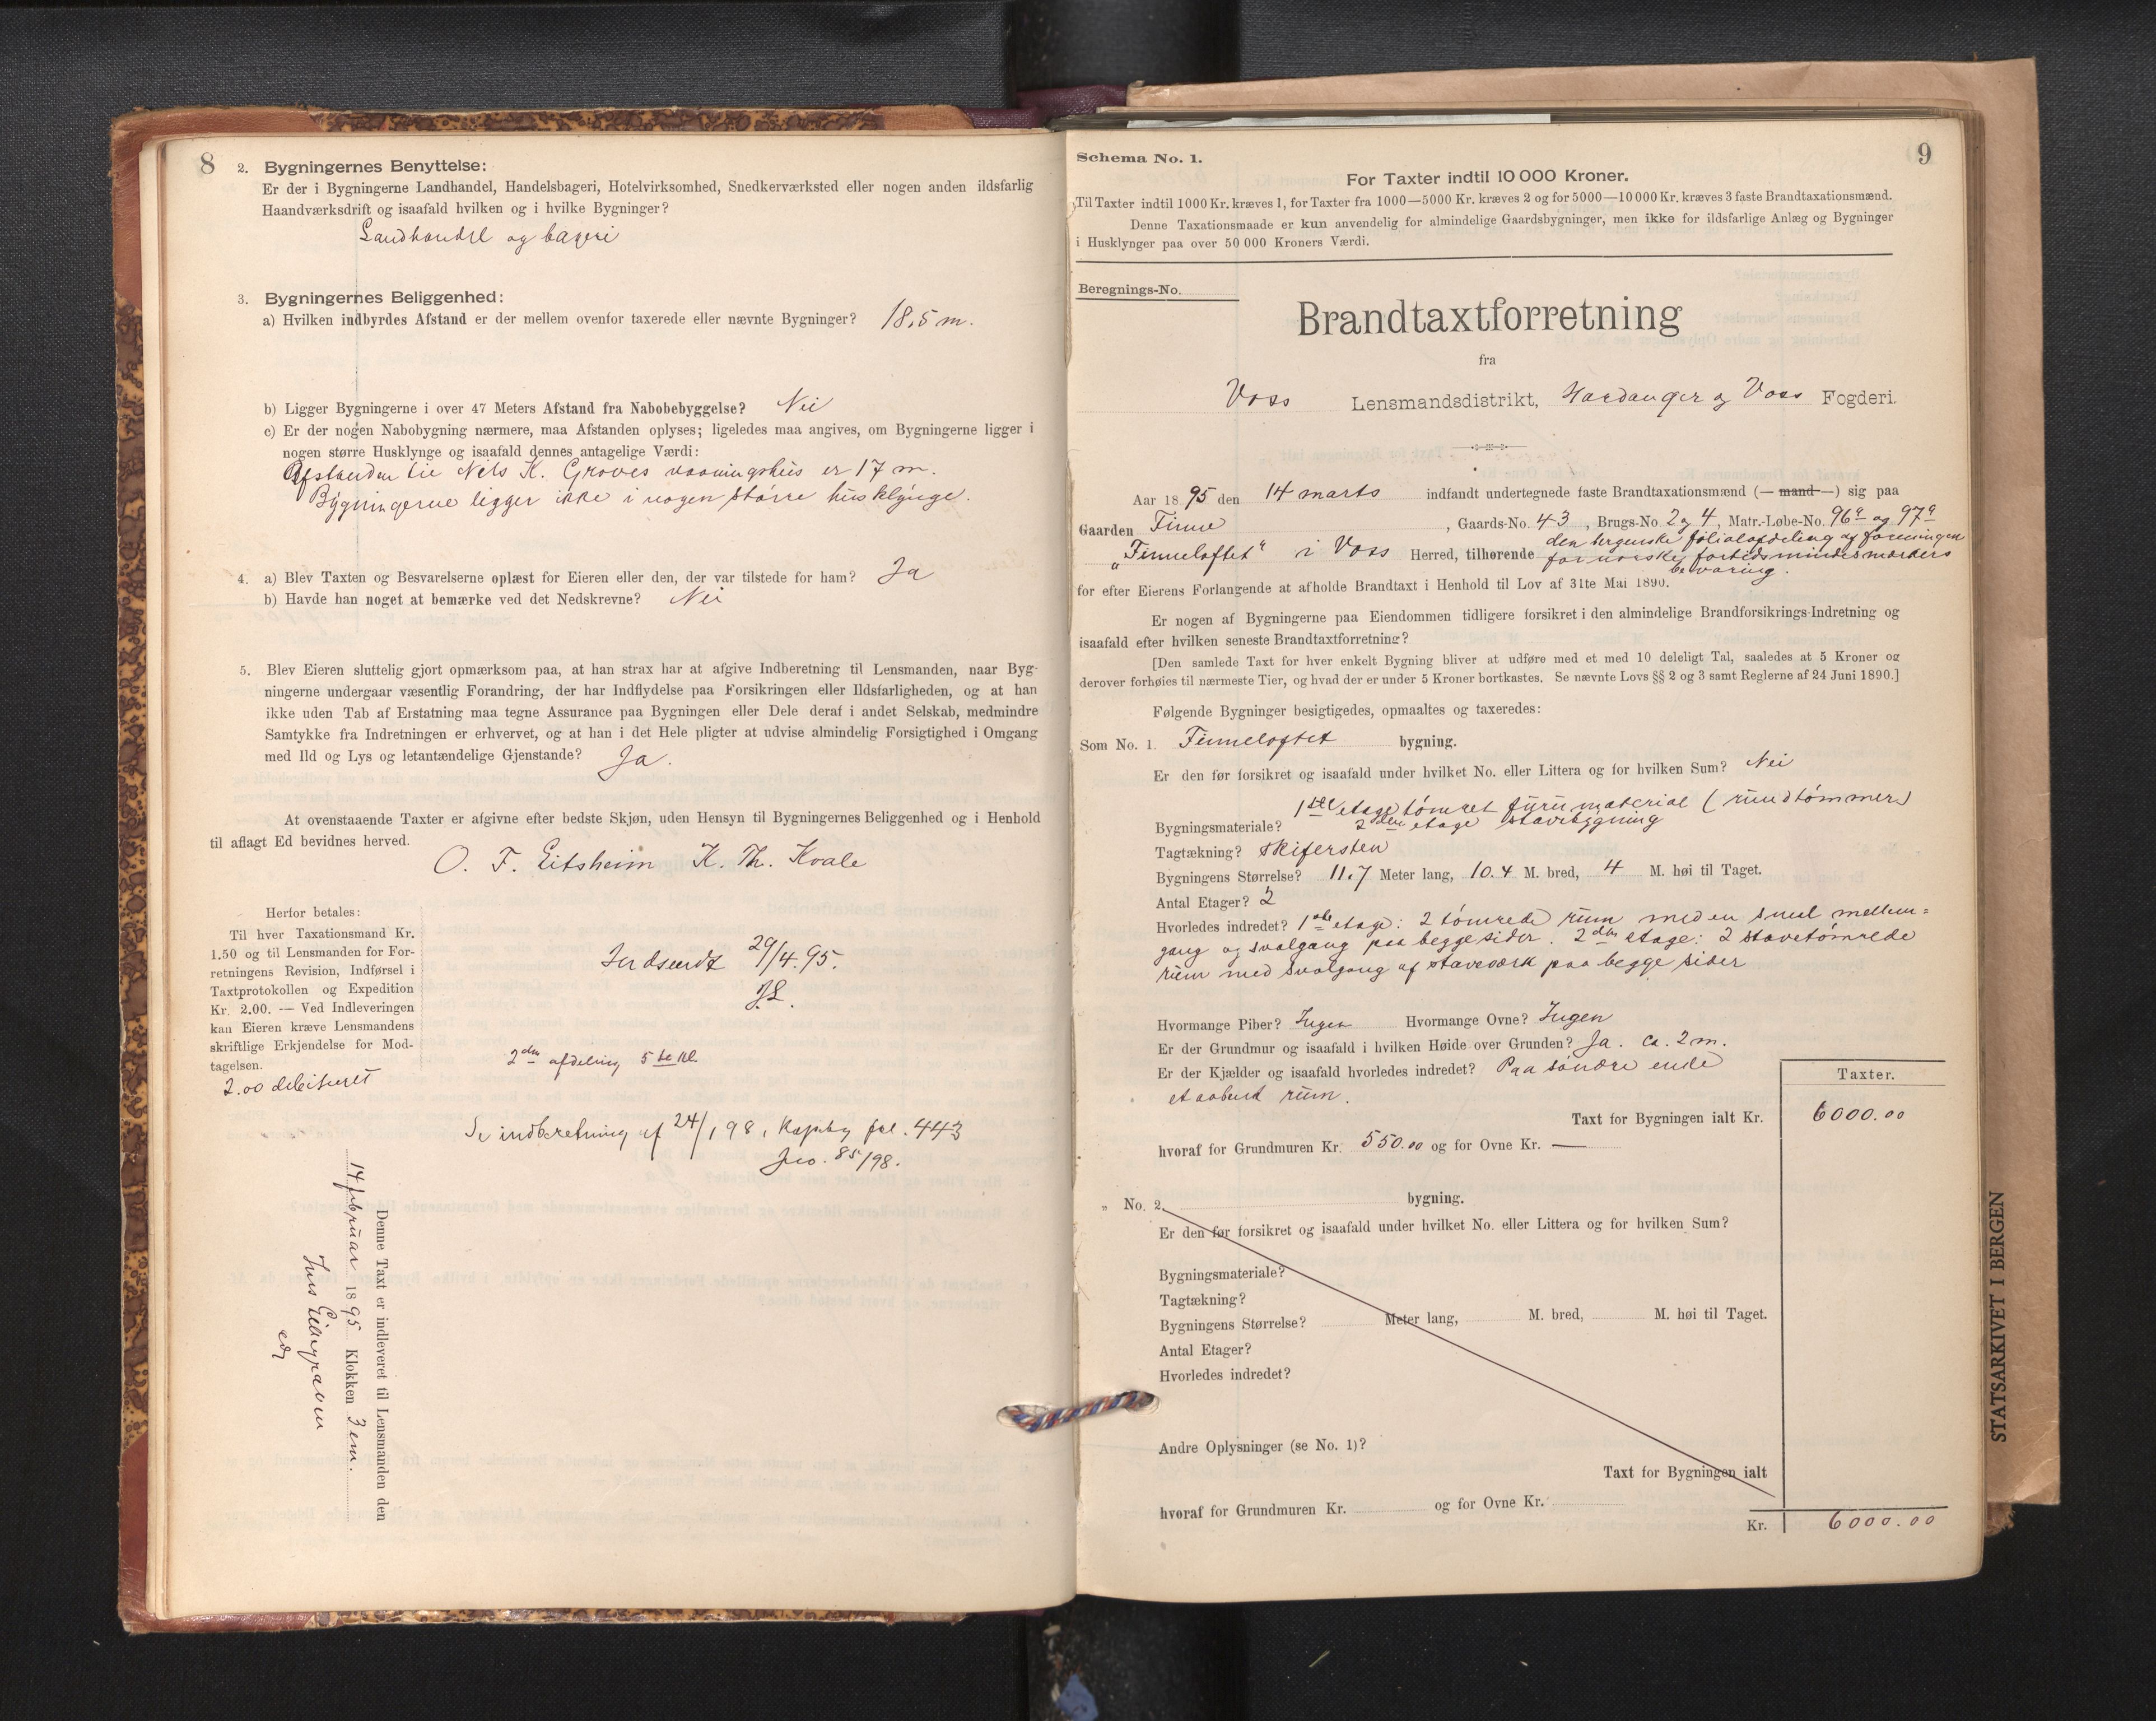 8
2. Bygningernes Benyttelse:
Er der i Bygningerne Landhandel, Handelsbageri, Hotelvirksomhed, Snedkerværksted eller nogen anden ildsfarlig
Haandværksdrift og isaafald hvilken og i hvilke Bygninger?
Landhandel og bageri
3. Bygningernes Beliggenhed:
a) Hvilken indbyrdes Afstand er der mellem ovenfor taxerede eller nævnte Bygninger? 18,5 m.
b) Ligger Bygningerne i over 47 Meters Afstand fra Nabobebyggelse? Nei
c) Er der nogen Nabobygning nærmere, maa Afstanden oplyses; ligeledes maa angives, om Bygningerne ligger i
nogen større Husklynge og isaafald dennes antagelige Værdi:
Afstanden til Nels K. Groves vaaningshus er 17 m.
Bygningerne ligger ikke i nogen større husklynge.
4. a) Blev Taxten og Besvarelserne oplæst for Eieren eller den, der var tilstede for ham? Ja
b) Havde han noget at bemærke ved det Nedskrevne? Nei
5. Blev Eieren sluttelig gjort opmærksom paa, at han strax har at afgive Indberetning til Lensmanden, naar Byg-
ningerne undergaar væsentlig Forandring, der har Indflydelse paa Forsikringen eller Ildsfarligheden, og at han
ikke uden Tab af Erstatning maa tegne Assurance paa Bygningen eller Dele deraf i andet Selskab, medmindre
Samtykke fra Indretningen er erhvervet, og at han i det Hele pligter at udvise almindelig Forsigtighed i Omgang
med Ild og Lys og letantændelige Gjenstande? Ja.
At ovenstaaende Taxter er afgivne efter bedste Skjøn, uden Hensyn til Bygningernes Beliggenhed og i Henhold
til aflagt Ed bevidnes herved.
O. T. Eitsheim K. Th. Kvale
Herfor betales:
Til hver Taxationsmand Kr.
1.50 og til Lensmanden for For-
retningens Revision, Indførsel i
Taxtprotokollen og Expedition
Kr. 2.00. — Ved Indleveringen
kan Eieren kræve Lensmandens
skriftlige Erkjendelse for Mod-
tagelsen.
2.00 debiteret
Indsendt 29/4.95.
2den afdeling 5te kl.
Se indberetning af 24/1 98, Kopiby fol. 443
Jno. 85/98.
Denne Taxt er indleveret til Lensmanden den
14 februar 1895 Klokken 3 em.
9
Schema No. 1.
For Taxter indtil 10 000 Kroner.
Til Taxter indtil 1000 Kr. kræves 1, for Taxter fra 1000—5000 Kr. kræves 2 og for 5000—10 000 Kr. kræves 3 faste Brandtaxationsmænd.
Denne Taxationsmaade er kun anvendelig for almindelige Gaardsbygninger, men ikke for ildsfarlige Anlæg og Bygninger
i Husklynger paa over 50 000 Kroners Værdi.
Beregnings-No.
Brandtaxtforretning
fra
Voss Lensmandsdistrikt, Hardanger og Voss Fogderi.
Aar 1895 den 14 marts indfandt undertegnede faste Brandtaxationsmænd (— mand —) sig paa
Gaarden Finne, Gaards-No. 43, Brugs-No. 2 og 4, Matr.-Løbe-No. 96a og 97a
den bergenske filialafdeling af foreningen
"Finneloftet" i Voss Herred, tilhørende for norske fortidsmindesmærkers
bevaring.
for efter Eierens Forlangende at afholde Brandtaxt i Henhold til Lov af 31te Mai 1890.
Er nogen af Bygningerne paa Eiendommen tidligere forsikret i den almindelige Brandforsikrings-Indretning og
isaafald efter hvilken seneste Brandtaxtforretning?
[Den samlede Taxt for hver enkelt Bygning bliver at udføre med et med 10 deleligt Tal, saaledes at 5 Kroner og
derover forhøies til nærmeste Tier, og hvad der er under 5 Kroner bortkastes. Se nævnte Lovs §§ 2 og 3 samt Reglerne af 24 Juni 1890.]
Følgende Bygninger besigtigedes, opmaaltes og taxeredes:
Som No. 1. Finneloftet bygning.
Er den før forsikret og isaafald under hvilket No. eller Littera og for hvilken Sum? Nei
1ste etage tømret furumaterial (rundtømmer)
Bygningsmateriale? 2den etage stavbygning
Tagtækning? Skifersten
Bygningens Størrelse? 11,7 Meter lang, 10.4 M. bred, 4 M. høi til Taget.
Antal Etager? 2
Hvorledes indredet? 1ste etage: 2 tømrede rum med en smal mellem=
gang og svalgang paa begge sider. 2den etage: 2 stavetømrede
rum med svalgang af staveværk paa begge sider
Hvormange Piber? Ingen Hvormange Ovne? Ingen
Er der Grundmur og isaafald i hvilken Høide over Grunden? Ja. ca. 2 m.
Er der Kjælder og isaafald hvorledes indredet? Paa søndre ende
et aabent rum.
Taxter.
Taxt for Bygningen ialt Kr. 6000.00
hvoraf for Grundmuren Kr. 550.00 og for Ovne Kr. —
" No. 2. bygning.
Er den før forsikret og isaafald under hvilket No. eller Littera og for hvilken Sum?
Bygningsmateriale?
Tagtækning?
Bygningens Størrelse? Meter lang, M. bred, M. høi til Taget.
Antal Etager?
Hvorledes indredet?
Andre Oplysninger (se No. 1)?
Taxt for Bygningen ialt
hvoraf for Grundmuren Kr. og for Ovne Kr.
Kr. 6000.00
STATSARKIVET I BERGEN